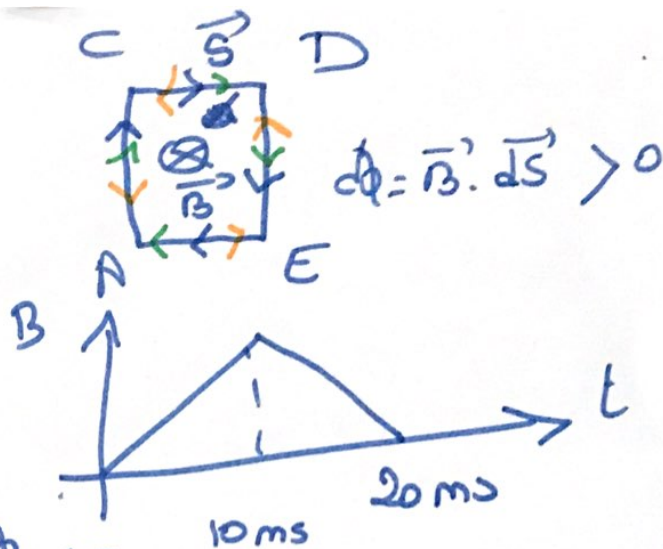 C S⃗ D
⊗
B⃗ dϕ = B⃗ . dS⃗ > 0
A E
B
t
10 ms 20 ms